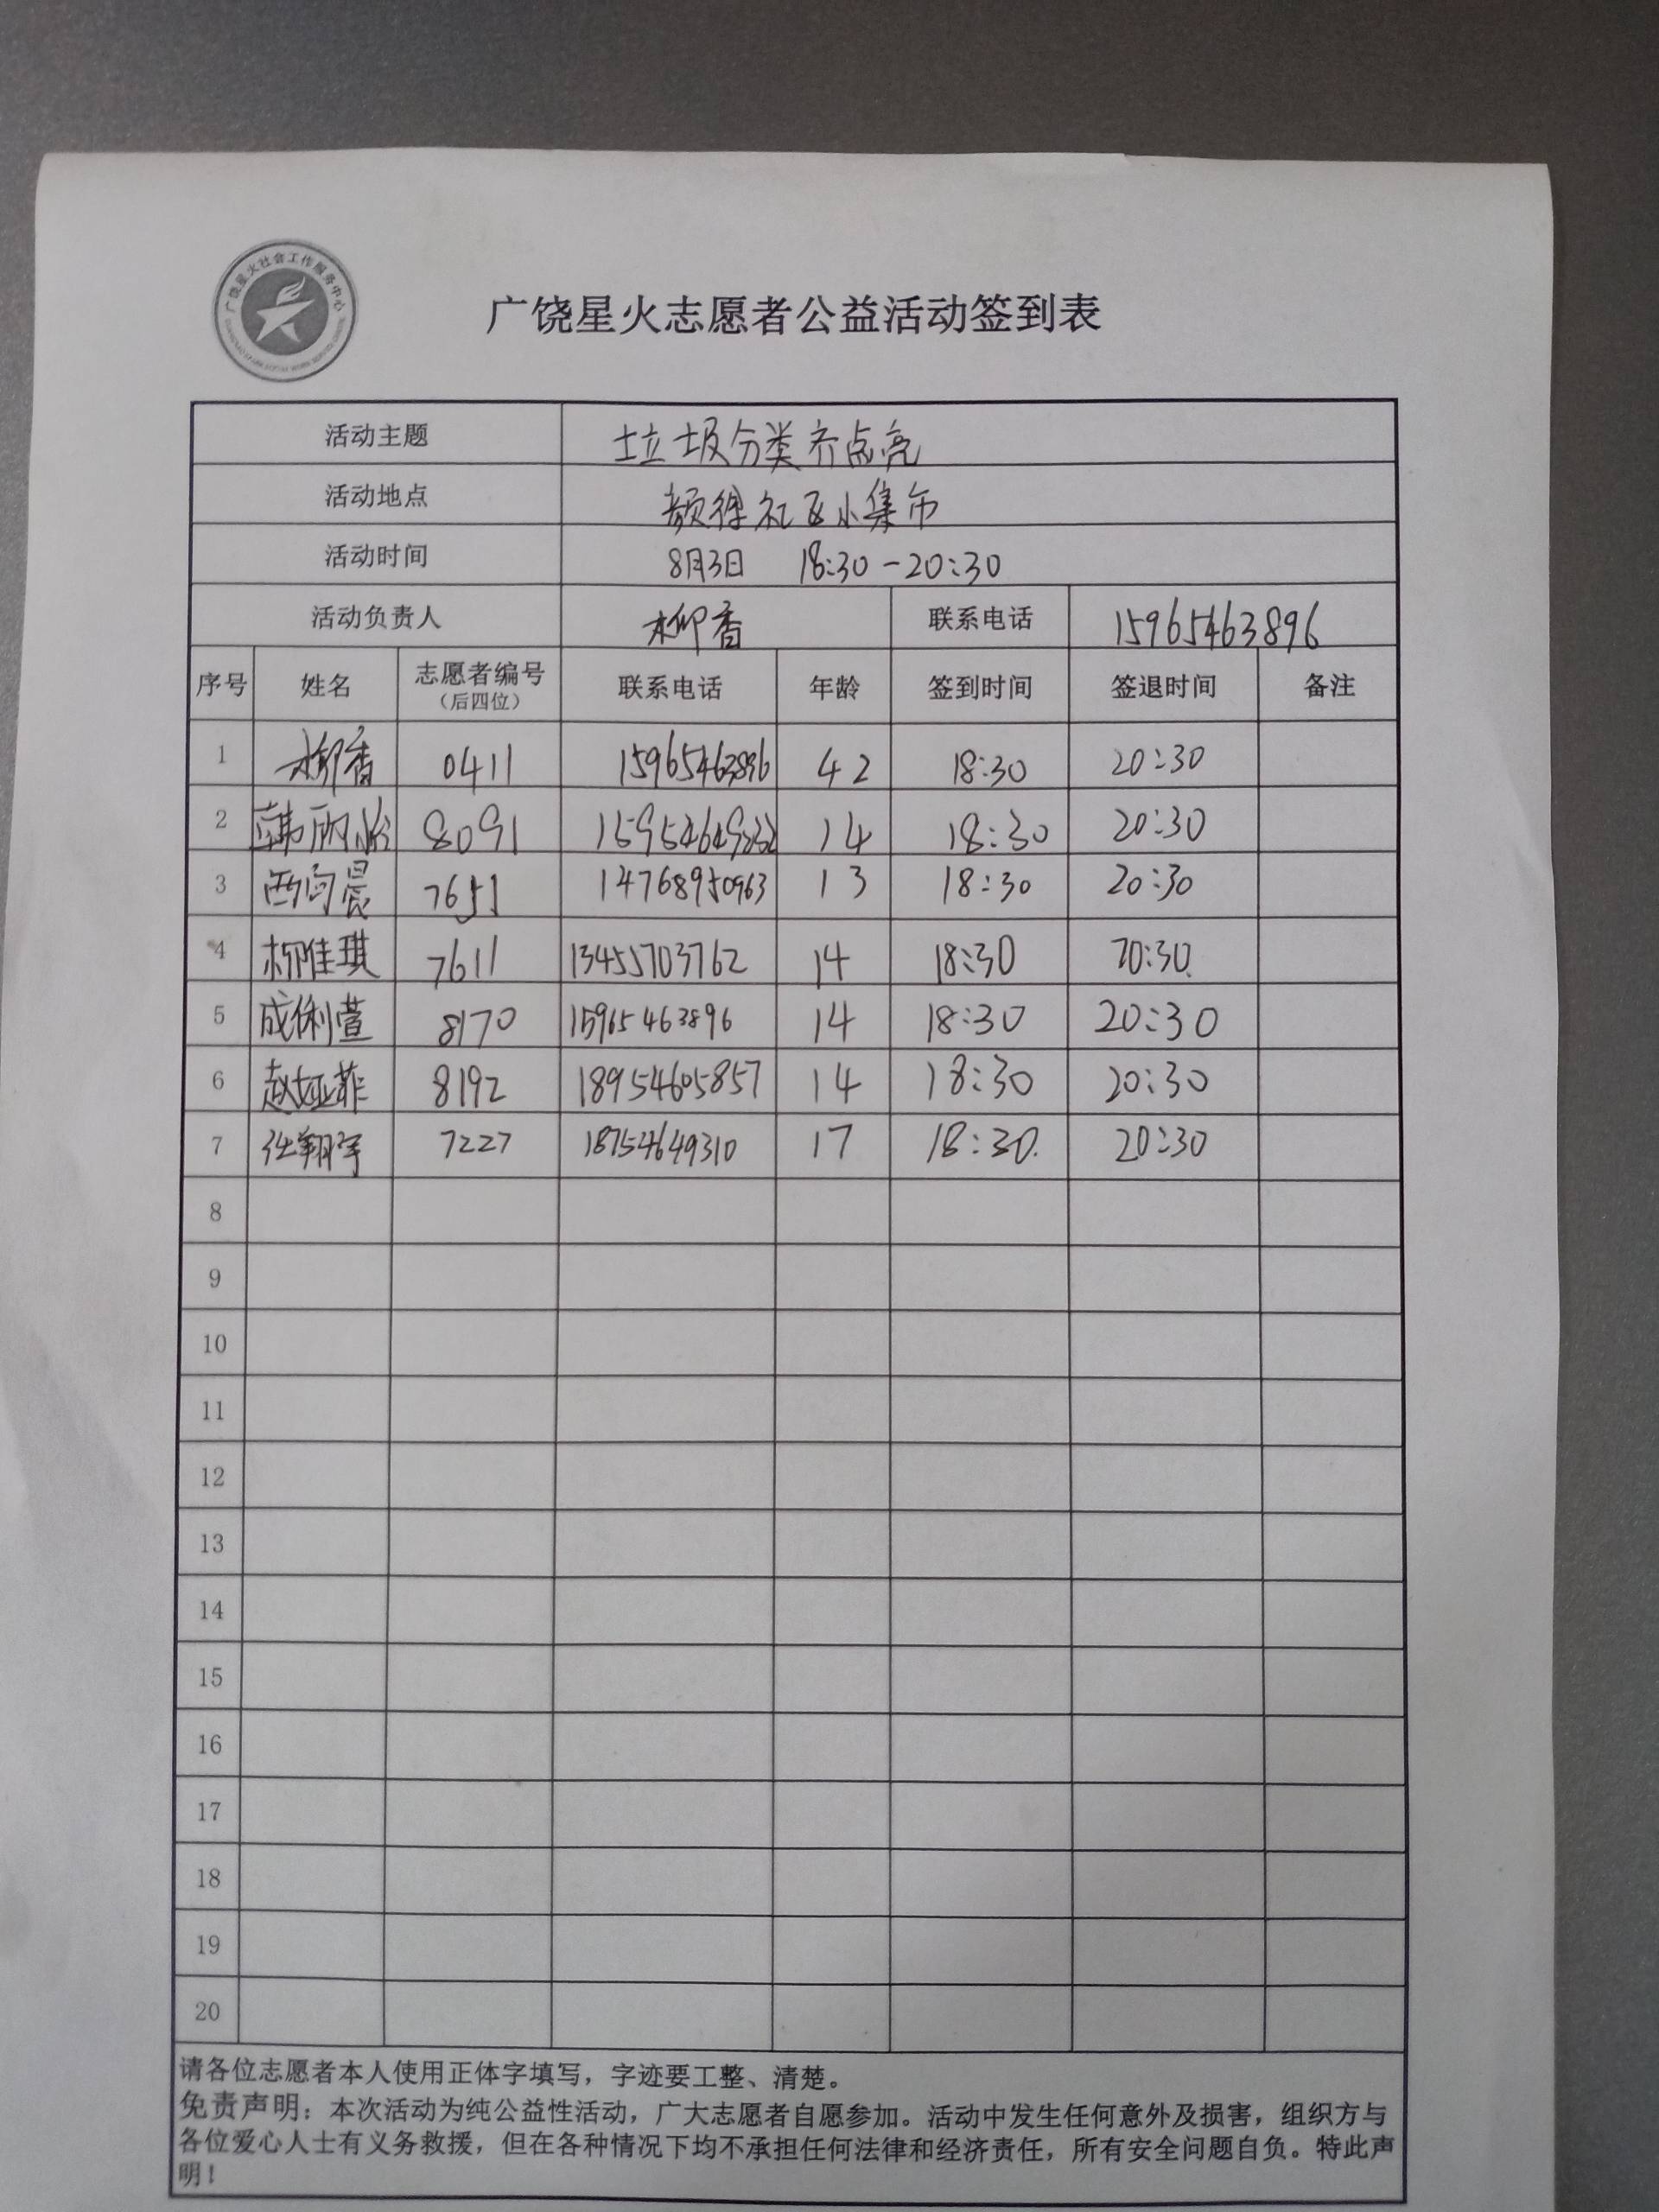 广饶星火社会工作服务中心
广饶星火志愿者公益活动签到表
活动主题 垃圾分类齐点亮
活动地点 颜徐社区小集市
活动时间 8月3日 18:30-20:30
活动负责人 柳香 联系电话 15965463896
序号 姓名 志愿者编号（后四位） 联系电话 年龄 签到时间 签退时间 备注
1 柳香 0411 15965463896 42 18:30 20:30
2 8091 14 18:30 20:30
3 7651 14768950963 13 18:30 20:30
4 柳佳琪 7611 13455703762 14 18:30 20:30
5 成俐萱 8170 15965463896 14 18:30 20:30
6 赵娅菲 8192 18954605857 14 18:30 20:30
7 张翔宇 7227 18754649310 17 18:30. 20:30
8
9
10
11
12
13
14
15
16
17
18
19
20
请各位志愿者本人使用正体字填写，字迹要工整、清楚。
免责声明：本次活动为纯公益性活动，广大志愿者自愿参加。活动中发生任何意外及损害，组织方与
各位爱心人士有义务救援，但在各种情况下均不承担任何法律和经济责任，所有安全问题自负。特此声
明！